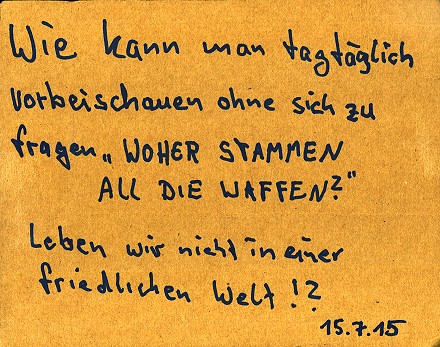 Wie kann man tagtäglich
vorbeischauen ohne sich zu
fragen „WOHER STAMMEN
ALL DIE WAFFEN?"
Leben wir nicht in einer
friedlichen Welt!?
15.7.15